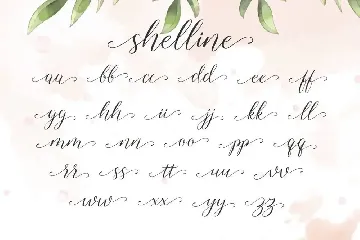 shelline
aa bb cc dd ee ff
gg hh ii jj kk ll
mm nn oo pp qq
rr ss tt uu vv
ww xx yy zz